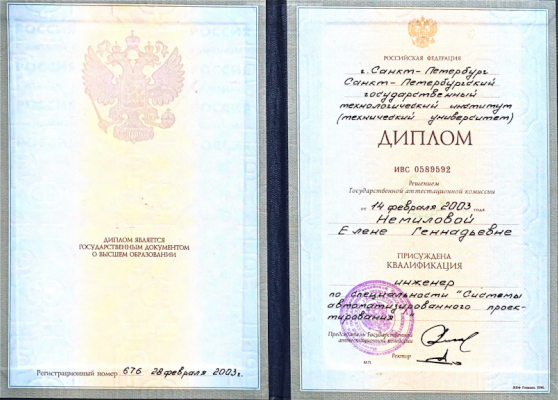 ДИПЛОМ ЯВЛЯЕТСЯ
ГОСУДАРСТВЕННЫМ ДОКУМЕНТОМ
О ВЫСШЕМ ОБРАЗОВАНИИ
Регистрационный номер 676 28 февраля 2003г.
РОССИЙСКАЯ ФЕДЕРАЦИЯ
г. Санкт-Петербург
Санкт-Петербургский
государственный
технологический институт
(технический университет)
ДИПЛОМ
ИВС 0589592
Решением
Государственной аттестационной комиссии
от 14 февраля 2003 года
Немиловой
Елене Геннадьевне
ПРИСУЖДЕНА
КВАЛИФИКАЦИЯ
инженер
по специальности "Системы
автоматизированного проек-
тирования"
Председатель Государственной
аттестационной комиссии
Ректор
М.П.